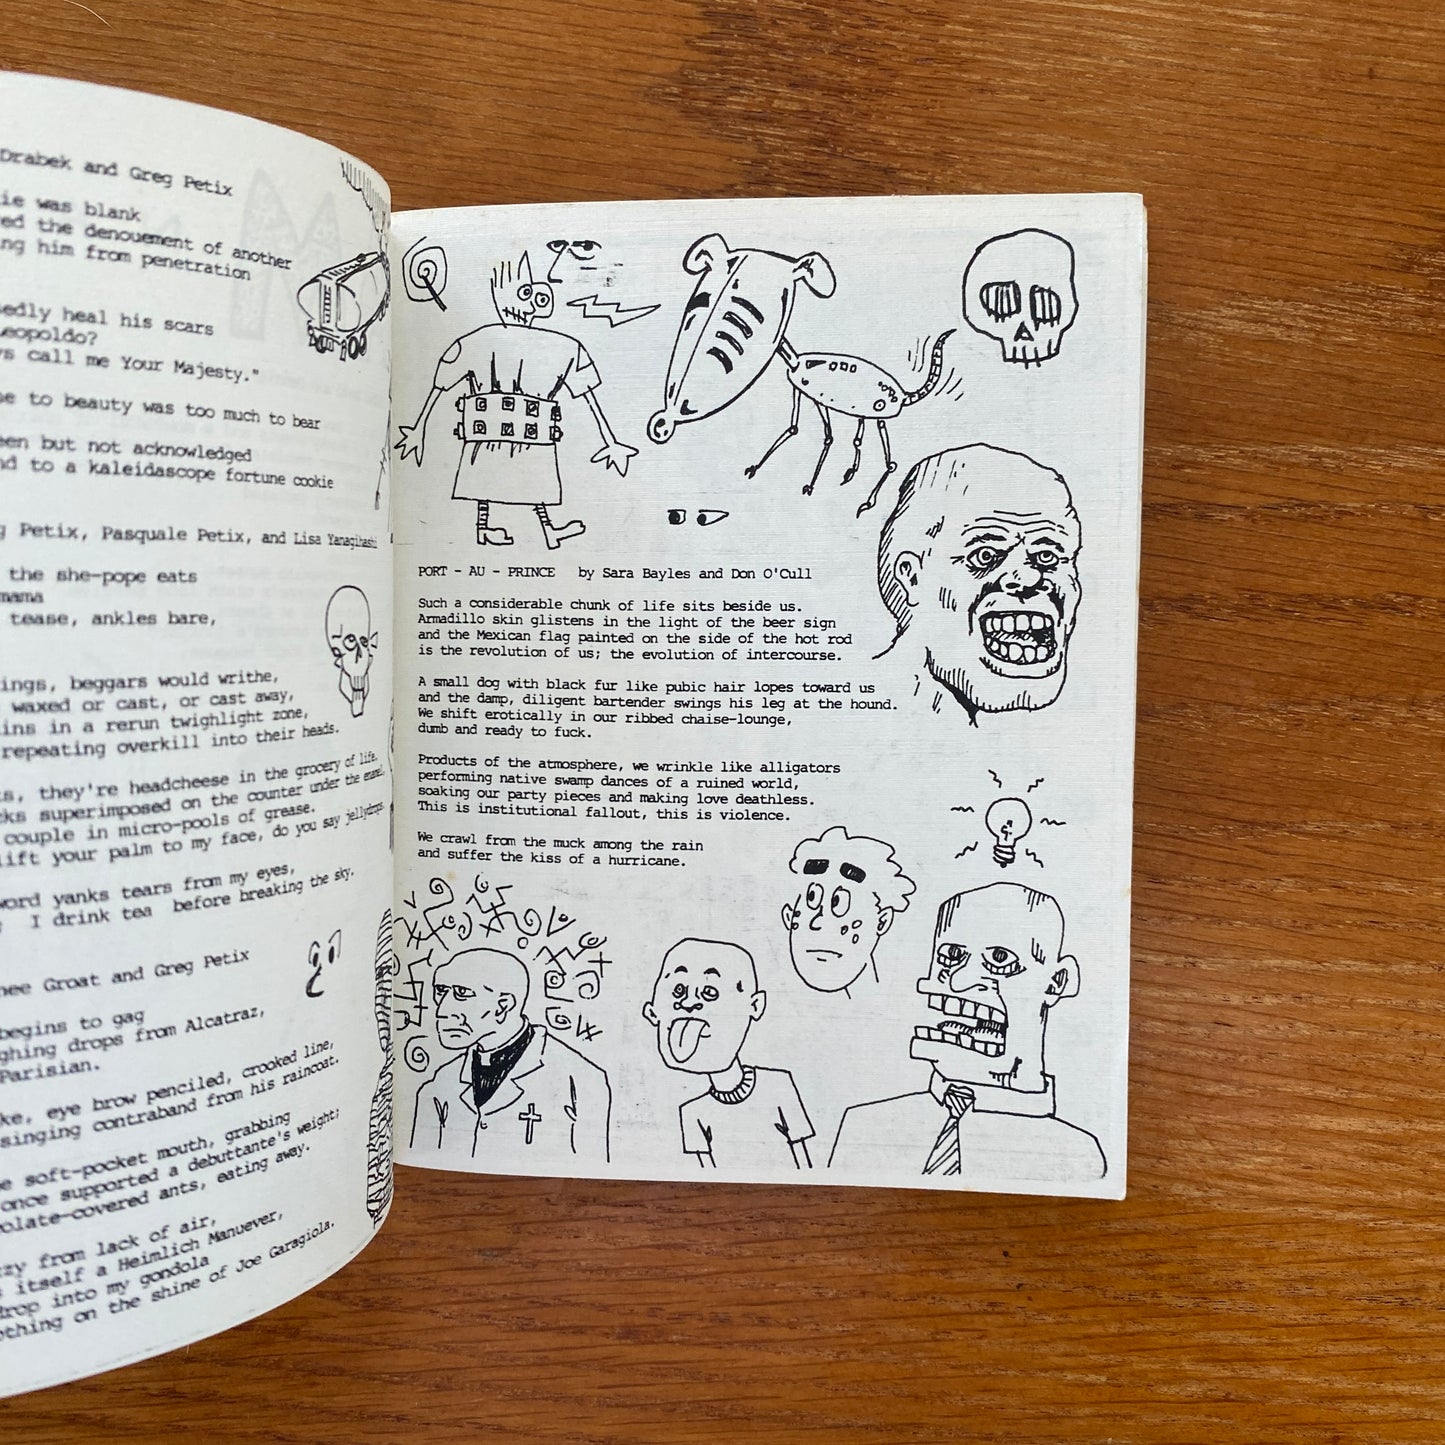 Drabek and Greg Petix
ie was blank
ed the denouement of another
ing him from penetration
edly heal his scars
Leopoldo?
ys call me Your Majesty."
se to beauty was too much to bear
een but not acknowledged
nd to a kaleidascope fortune cookie
g Petix, Pasquale Petix, and Lisa Yanagihashi
the she-pope eats
mama
tease, ankles bare,
ings, beggars would writhe,
waxed or cast, or cast away,
ins in a rerun twighlight zone,
repeating overkill into their heads.
ts, they're headcheese in the grocery of life,
cks superimposed on the counter under the enamel,
couple in micro-pools of grease.
lift your palm to my face, do you say jellydrops
word yanks tears from my eyes,
I drink tea before breaking the sky.
nee Groat and Greg Petix
begins to gag
ghing drops from Alcatraz,
Parisian.
ke, eye brow penciled, crooked line,
singing contraband from his raincoat.
e soft-pocket mouth, grabbing
once supported a debuttante's weight;
olate-covered ants, eating away.
zy from lack of air,
s itself a Heimlich Manuever,
drop into my gondola
othing on the shine of Joe Garagiola.
PORT - AU - PRINCE by Sara Bayles and Don O'Cull
Such a considerable chunk of life sits beside us.
Armadillo skin glistens in the light of the beer sign
and the Mexican flag painted on the side of the hot rod
is the revolution of us; the evolution of intercourse.
A small dog with black fur like pubic hair lopes toward us
and the damp, diligent bartender swings his leg at the hound.
We shift erotically in our ribbed chaise-lounge,
dumb and ready to fuck.
Products of the atmosphere, we wrinkle like alligators
performing native swamp dances of a ruined world,
soaking our party pieces and making love deathless.
This is institutional fallout, this is violence.
We crawl from the muck among the rain
and suffer the kiss of a hurricane.